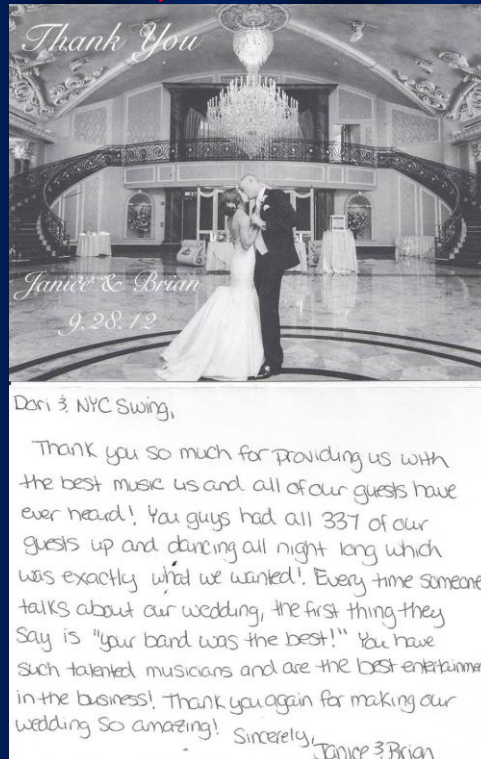 Thank You
Janice & Brian
9.28.12
Dori & NYC Swing,
Thank you so much for providing us with
the best music us and all of our guests have
ever heard! You guys had all 337 of our
guests up and dancing all night long which
was exactly what we wanted! Every time someone
talks about our wedding, the first thing they
say is "your band was the best!" You have
such talented musicians and are the best entertainmen
in the business! Thank you again for making our
wedding so amazing!
Sincerely,
Janice & Brian